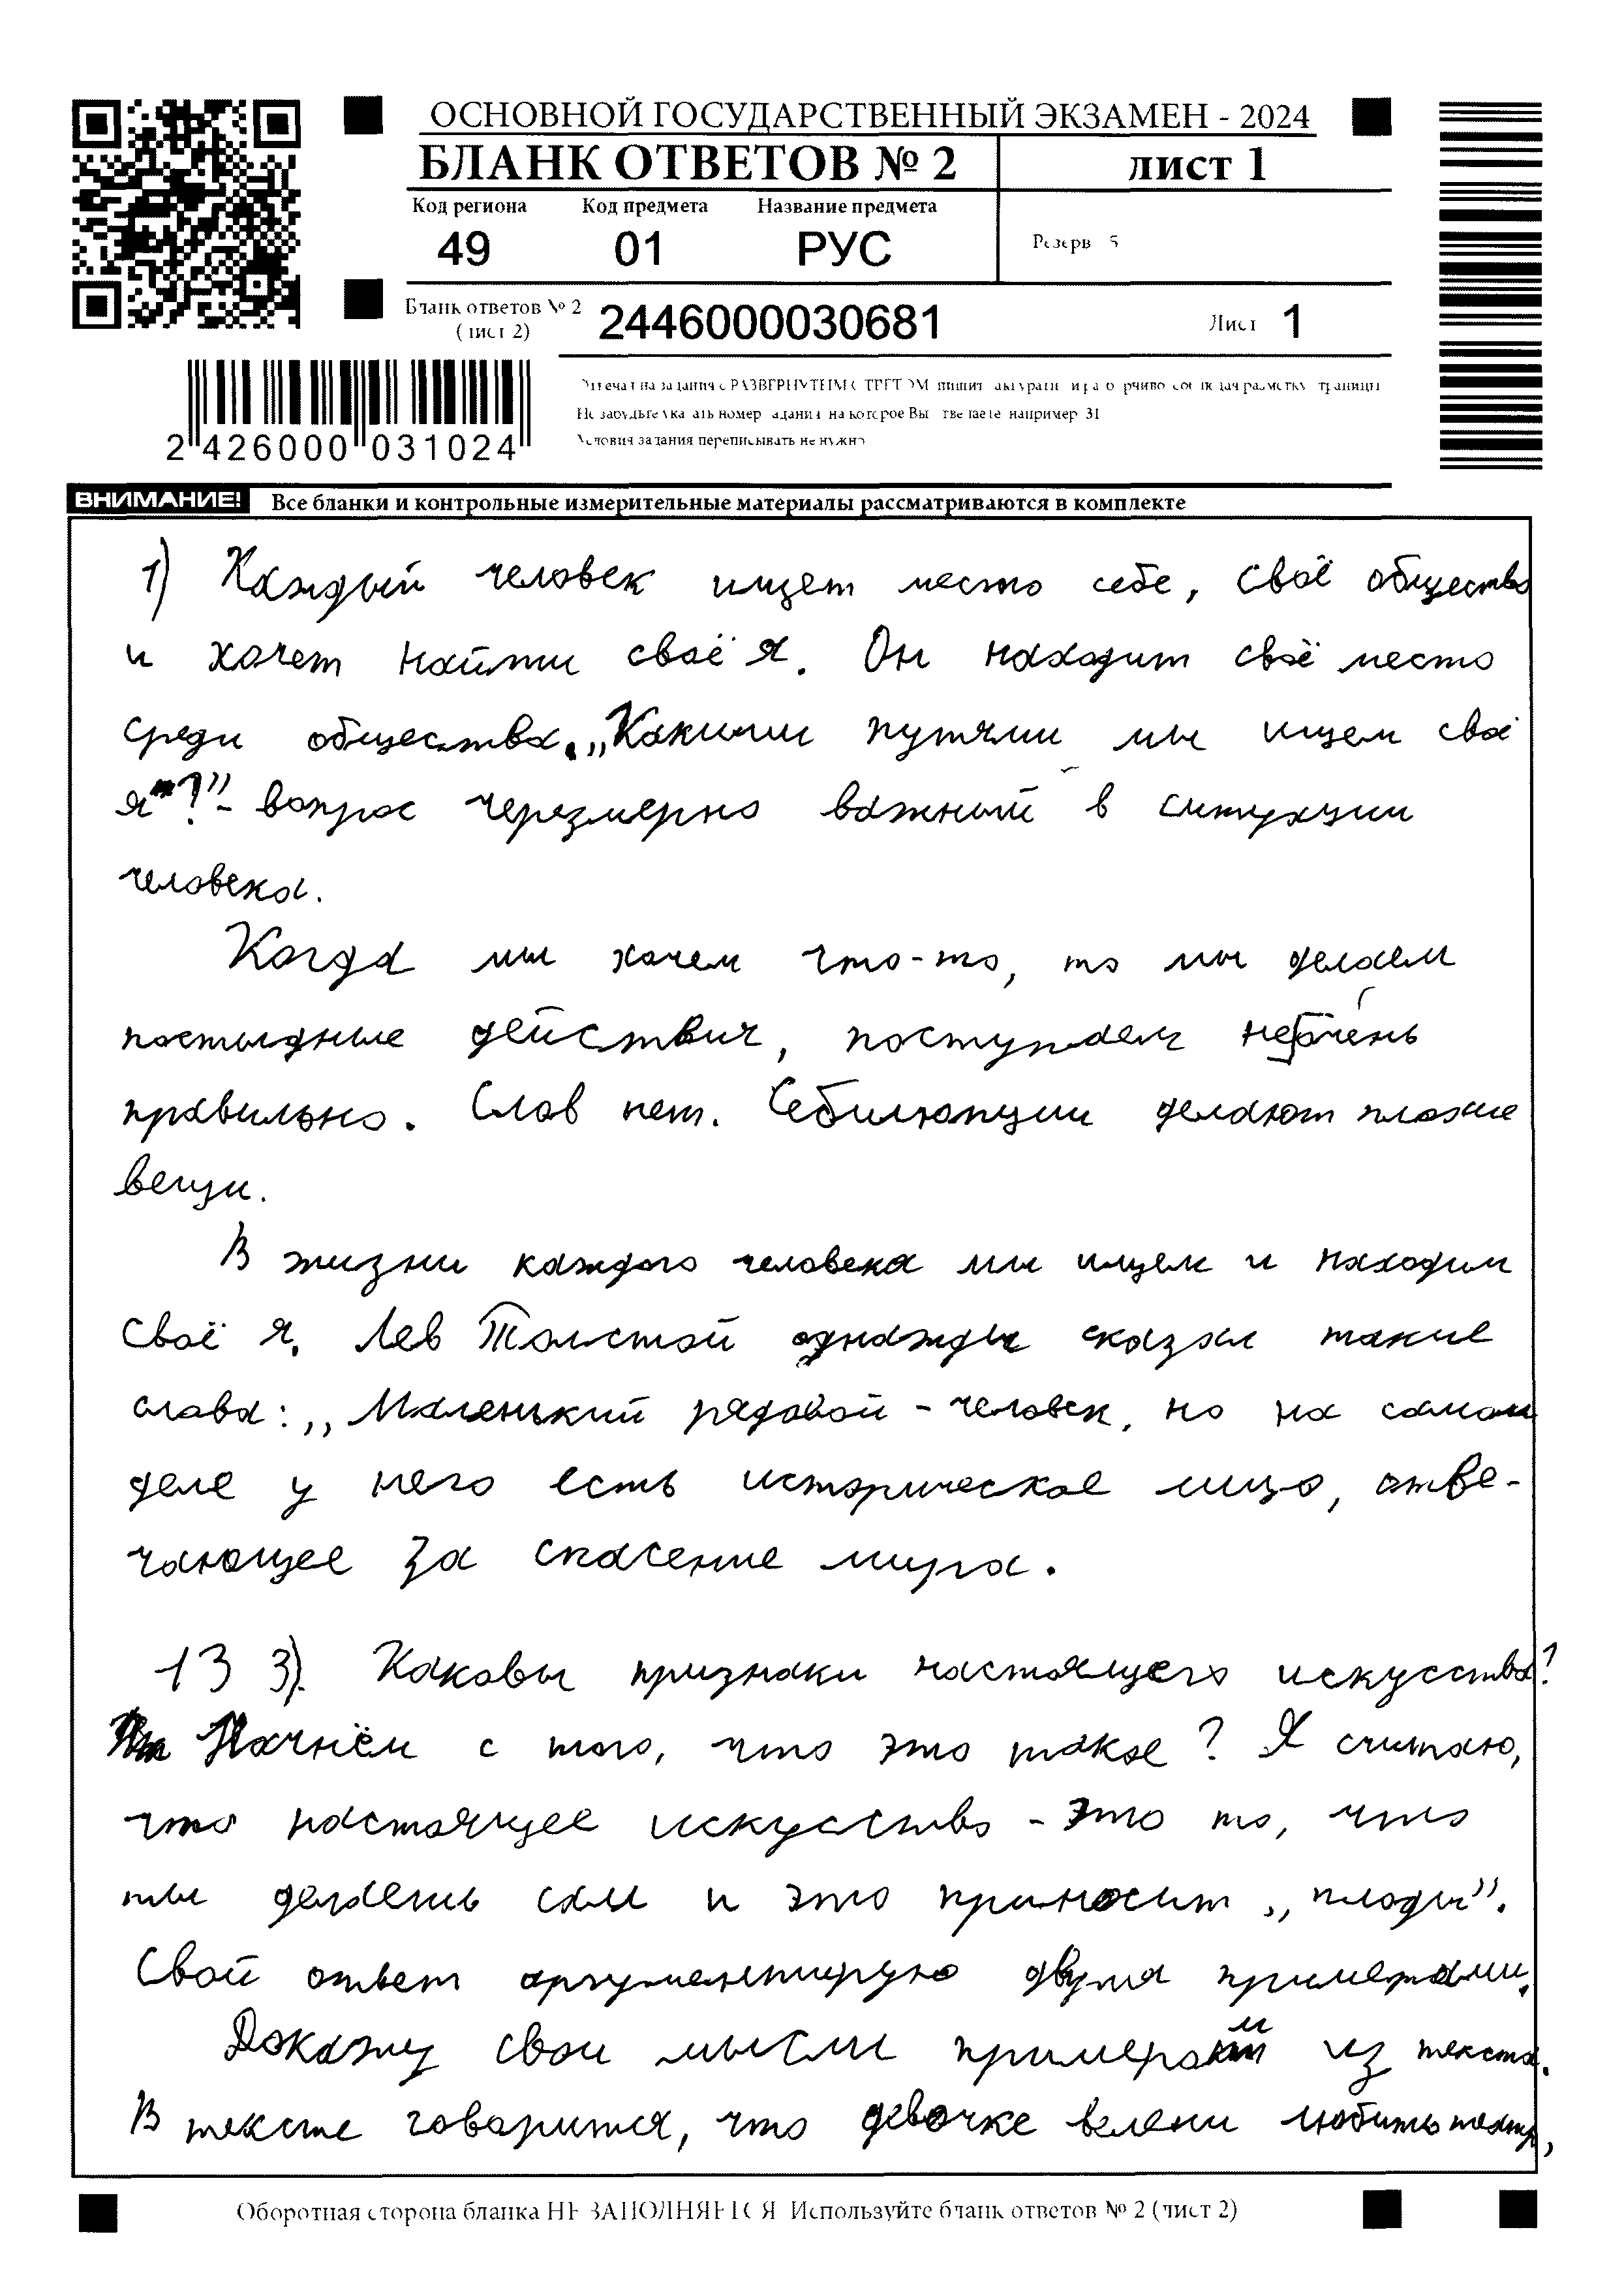 ОСНОВНОЙ ГОСУДАРСТВЕННЫЙ ЭКЗАМЕН - 2024
БЛАНК ОТВЕТОВ № 2
лист 1
Код региона Код предмета Название предмета
49 01 РУС
Резерв 5
Бланк ответов № 2
(лист 2)
2446000030681
Лист 1
2 426000 031024
Не забудьте указать номер задания на которое Вы отвечаете например 31
Условия задания переписывать не нужно
ВНИМАНИЕ! Все бланки и контрольные измерительные материалы рассматриваются в комплекте
1) Каждый человек ищет место себе, своё общество
и хочет найти своё я. Он находит своё место
среди общества. „Какими путями мы ищем своё
я"?" - вопрос черезмерно важный в ситуации
человека.
Когда мы хочем что-то, то мы делаем
постыдные действия, поступаем не очень
правильно. Слов нет. делают плохие
вещи.
В жизни каждого человека мы ищем и находим
своё я. Лев Толстой однажды сказал такие
слова: „Маленький рядовой - человек, но на самом
деле у него есть историческое лицо, отве-
чающее за спасение мира.
13 3). Каковы признаки настоящего искусства?
Начнём с того, что это такое? Я считаю,
что настоящее искусство - это то, что
ты делаешь сам и это приносит „плоды".
Свой ответ аргументирую двумя примерами.
Докажу свои мысли примерами из текста.
В тексте говорится, что девочке велели любить театр,
Оборотная сторона бланка НЕ ЗАПОЛНЯЕТСЯ Используйте бланк ответов № 2 (лист 2)